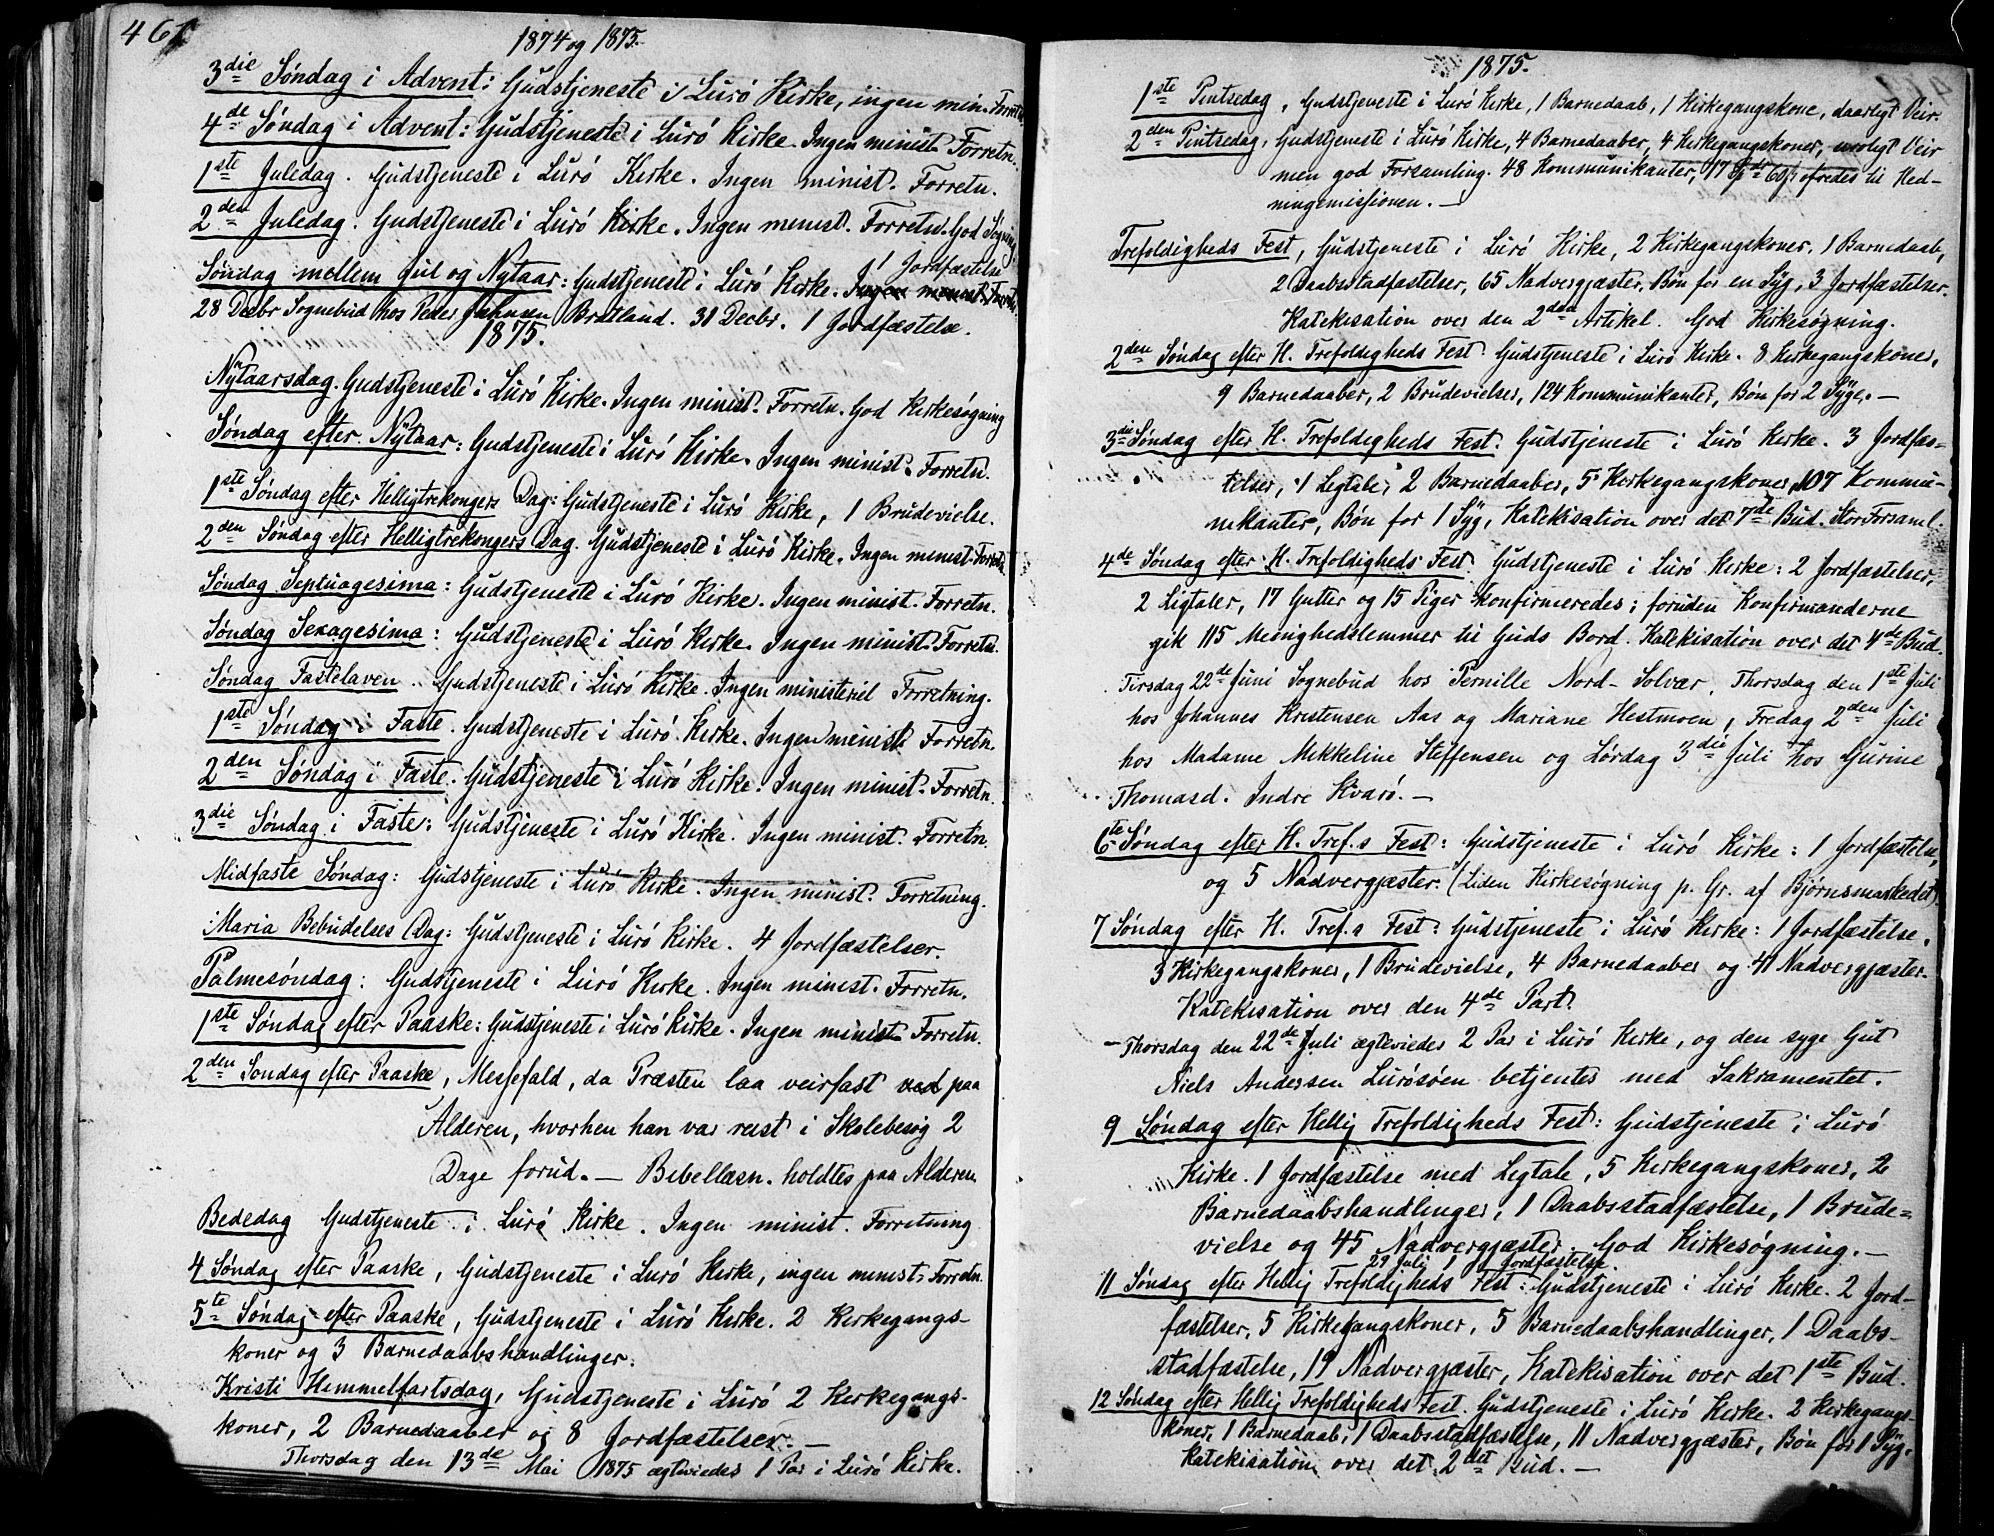 461
1874 og 1875.
3die Søndag i Advent: Gudstjeneste i Lurö Kirke, ingen min. Forretn.
4de Søndag i Advent: Gudstjeneste i Lurö Kirke. Ingen minist. Forretn.
1ste Juledag. Gudstjeneste i Lurö Kirke. Ingen minist. Forretn.
2den Juledag. Gudstjeneste i Lurö Kirke. Ingen minist. Forretn. God Søgning
1 Jordfæstelse
Søndag mellem Jul og Nytaar: Gudstjeneste i Lurö Kirke. Ingen minist. Forretn.
28 Decbr Sognebud hos Peder Johnsen Bratland. 31 Decbr. 1 Jordfæstelse.
1875.
Nytaarsdag. Gudstjeneste i Lurö Kirke. Ingen minist. Forretn. God Kirkesøgning
Søndag efter Nytaar: Gudstjeneste i Lurö Kirke. Ingen minist. Forretn.
1ste Søndag efter Helligtrekongers Dag: Gudstjeneste i Lurö Kirke, 1 Brudevielse.
2den Søndag efter Helligtrekongers Dag. Gudstjeneste i Lurö Kirke. Ingen minist. Forretn.
Søndag Septuagesima: Gudstjeneste i Lurö Kirke. Ingen minist. Forretn.
Søndag Sexagesima: Gudstjeneste i Lurö Kirke. Ingen minist. Forretn.
Søndag Fastelaven. Gudstjeneste i Lurö Kirke. Ingen ministeriel Forretning.
1ste Søndag i Faste. Gudstjeneste i Lurö Kirke. Ingen minist. Forretn.
2den Søndag i Faste. Gudstjeneste i Lurö Kirke. Ingen minist. Forretn.
3die Søndag i Faste: Gudstjeneste i Lurö Kirke. Ingen minist. Forretn.
Midfaste Søndag: Gudstjeneste i Lurö Kirke. Ingen minist. Forretning.
Maria Bebudelses Dag: Gudstjeneste i Lurö Kirke. 4 Jordfæstelser.
Palmesøndag: Gudstjeneste i Lurö Kirke. Ingen minist. Forretn.
1ste Søndag efter Paaske: Gudstjeneste i Lurö Kirke. Ingen minist. Forretn.
2den Søndag efter Paaske, Messefald, da Præsten laa veirfast ved paa
Alderen, hvorhen han var reist i Skolebesøg 2
Dage forud. — Bibellæsn. holdtes paa Alderen
Bededag Gudstjeneste i Lurö Kirke. Ingen minist. Forretning
4 Søndag efter Paaske, Gudstjeneste i Lurö Kirke, ingen minist. Forretn.
5te Søndag efter Paaske, Gudstjeneste i Lurö Kirke. 2 Kirkegangs-
koner og 3 Barnedaabshandlinger.
Kristi Himmelfartsdag, Gudstjeneste i Lurö 2 Kirkegangs-
koner, 2 Barnedaaber og 8 Jordfæstelser. —
Thorsdag den 13de Mai 1875 ægtviedes 1 Par i Lurö Kirke.
1875.
1ste Pintsedag, Gudstjeneste i Lurö Kirke, 1 Barnedaab, 1 Kirkegangskone, daarligt Veir.
2den Pintsedag, Gudstjeneste i Lurö Kirke, 4 Barnedaaber, 4 Kirkegangskoner, uroligt Veir
men god Forsamling. 48 Kommunikanter, 17 ofredes til Hed-
ningemissionen. —
Trefoldigheds Fest, Gudstjeneste i Lurö Kirke, 2 Kirkegangskoner, 1 Barnedaab,
2 Daabsstadfæstelser, 65 Nadvergjæster, Bøn for en Syg, 3 Jordfæstelser.
Katekisation over den 2den Artikel. God Kirkesøgning.
2den Søndag efter H. Trefoldigheds Fest. Gudstjeneste i Lurö Kirke. 8 Kirkegangskoner,
9 Barnedaaber, 2 Brudevielser, 124 Kommunikanter, Bøn for 2 Syge. —
3die Søndag efter H. Trefoldigheds Fest: Gudstjeneste i Lurö Kirke. 3 Jordfæs-
telser, 1 Ligtale, 2 Barnedaaber, 5 Kirkegangskoner, 107 Kommu-
nikanter, Bøn for 1 Syg, Katekisation over det 7de Bud. Stor Forsaml.
4de Søndag efter H. Trefoldigheds Fest. Gudstjeneste i Lurö Kirke: 2 Jordfæstelser,
2 Ligtaler, 17 Gutter og 15 Piger konfirmeredes; foruden Konfirmanderne
gik 115 Menighedslemmer til Guds Bord. Katekisation over det 4de Bud.
Tirsdag 22de Juni Sognebud hos Pernille Nord-Solvær, Thorsdag den 1ste Juli
hos Johannes Kristensen Aas og Mariane Hestmoen, Fredag 2den Juli
hos Madame Mikkeline Steffensen og Lørdag 3die Juli hos Gurine
Thomasd. Indre Kvarö. —
6te Søndag efter H. Tref.s Fest: Gudstjeneste i Lurö Kirke: 1 Jordfæstelse,
og 5 Nadvergjæster. (Liden Kirkesøgning p. Gr. af Bjørnsmarkedet).
7 Søndag efter H. Tref.s Fest: Gudstjeneste i Lurö Kirke: 1 Jordfæstelse,
3 Kirkegangskoner, 1 Brudevielse, 4 Barnedaaber og 41 Nadvergjæster.
Katekisation over den 4de Part.
— Thorsdag den 22de Juli ægtevieder 2 Par i Lurö Kirke, og den syge Gut
Niels Andersen Lurösöen betjentes med Sakramentet.
9 Søndag efter Hellig Trefoldigheds Fest: Gudstjeneste i Lurö
Kirke. 1 Jordfæstelse med Ligtale, 5 Kirkegangskoner, 2
Barnedaabshandlinger, 1 Daabsstadfæstelse, 1 Brude-
vielse og 45 Nadvergjæster. God Kirkesøgning. —
29 Juli 1 Jordfæstelse.
11 Søndag efter Hellig Trefoldigheds Fest: Gudstjeneste i Lurö Kirke. 2 Jord-
fæstelser, 5 Kirkegangskoner, 5 Barnedaabshandlinger, 1 Daabs-
stadfæstelse, 19 Nadvergjæster, Katekisation over det 1ste Bud.
12 Søndag efter Hellig Trefoldigheds Fest. Gudstjeneste i Lurö Kirke. 2 Kirkegangs-
koner, 1 Barnedaab, 1 Daabsstadfæstelse, 11 Nadvergjæster, Bøn for 1 Syg,
Katekisation over det 2det Bud. —